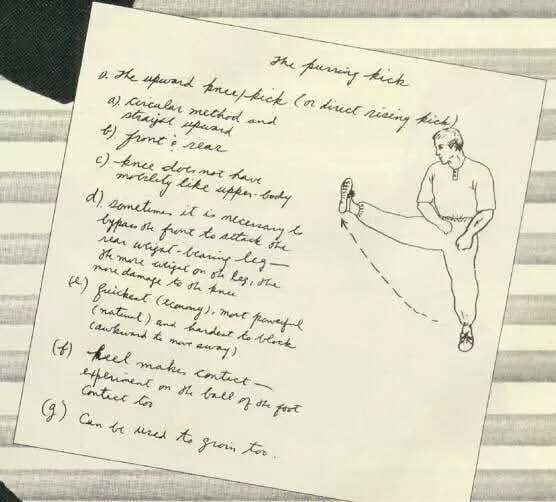 The purring kick
a. The upward knee/kick (or direct rising kick)
a). circular method and
straight upward
b) front & rear
c) knee does not have
mobility like upper-body
d). sometimes it is necessary to
bypass the front to attack the
rear weight-bearing leg —
the more weight on the leg, the
more damage to the knee
(e) quickest (economy), most powerful
(natural) and hardest to block
(awkward to move away)
(f) heel makes contact —
experiment on the ball of the foot
contact too
(g) Can be used to groin too.